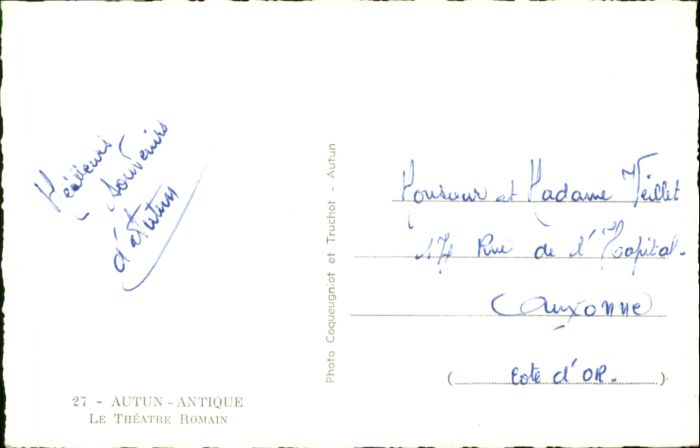 Meilleurs
souvenirs
d'Autun
27 - AUTUN-ANTIQUE
LE THÉATRE ROMAIN
Photo Coqueugniot et Truchot - Autun
Monsieur et Madame Veillet
14 Rue de l'Hopital.
Auxonne
(Cote d'OR.)